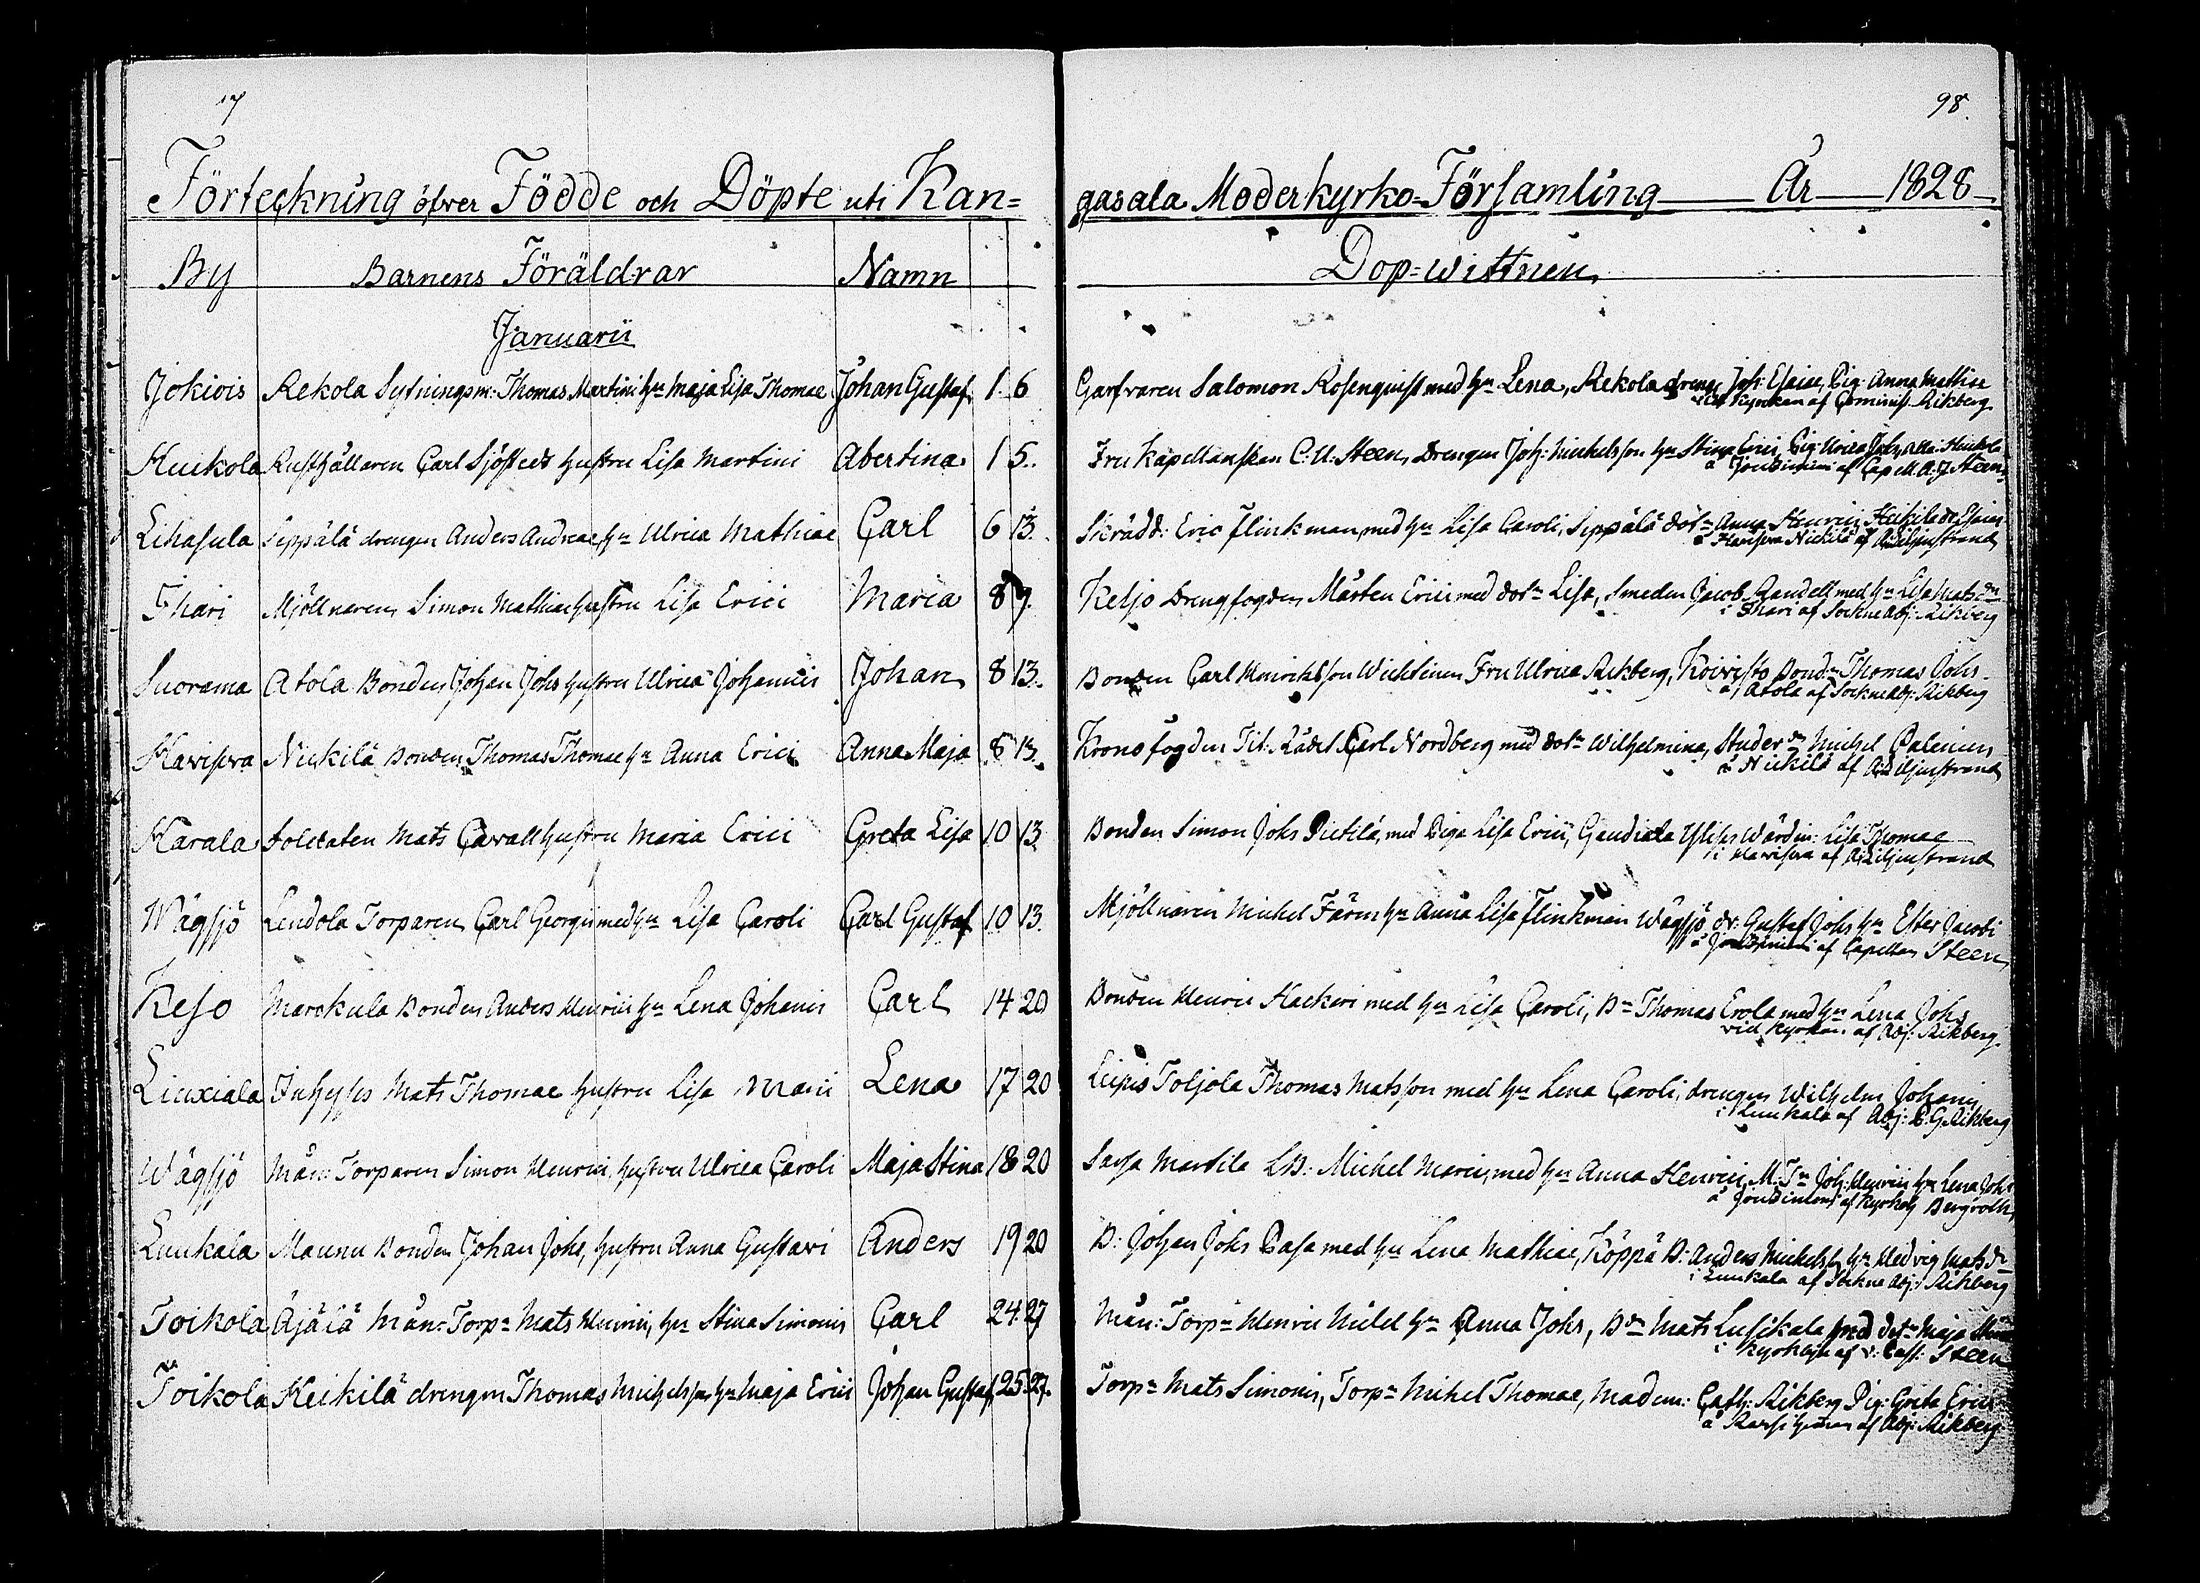 98.
Förteckning öfver Födde och Döpte uti Kan=
gasala Moderkyrko-Församling År 1828
By Barnens Föräldrar Namn
Dop=wittnen
Januarii
Jokiois Rekola Sytningsm: Thomas Martini hu Maja Lisa Thomae Johan Gustaf 1. 6
Garfvaren Salomon Rosenquist med hu Lena, Rekola dreng Joh: Esaiae, Pig: Anna Mathiae
kyrckan af Rikberg
Kuikola Rusthållaren Carl Sjöstedt hustru Lisa Martini Abertina 1 5.
Fru Kapellanskan C. U. Steen, Drengen Joh: Michelsson hu Stina Erici, Pig: Ulrica Joh,
af Capell. A. J. Steen
Lihasula Seppälä drengen Anders Andreae, hu Ulrica Mathiae Carl 6 13.
Skrädd: Eric Flinkman, med hu Lisa Caroli, Seppälä dotr Anna Henrici
Nickilä af
Ihari Mjöllnaren Simon Mathiae hustru Lisa Erici Maria 8 9.
Keljo Drengfogden Mårten Erici med dotr Lisa, Smeden Jacob Randell med hu Lisa Mats dr
i Ihari af Sockne Adj: Rikberg
Suorama Atola Bonden Johan Johs hustru Ulrica Johannis Johan 8 13.
Bonden Carl Henriksson Wichtinen Fru Ulrica Rikberg, Koivisto Bond: Thomas Johs
å Atola af Sockne adj: Rikberg
Havisva Nickilä Bonden Thomas Thomae hu Anna Erici Anna Maja 8 13.
Kronofogden Tit: Rådet Carl Nordberg med dotr Wilhelmina, Studer: Michel
å Nickilä af
Harala Soldaten Mats Cavall hustru Maria Erici Greta Lisa 10 13
Bonden Simon Johs Pietilä, med Piga Lisa Erici, Lisa Thomae
i Havisva af
Wägsjö Lendola Torparen Carl Georgii med hu Lisa Caroli Carl Gustaf 10 13.
Mjöllnaren Michel Färm hu Anna Lisa Flinkman Wägsjö dr: Gustaf Johs hu Ester Jacobi
af Capellan Steen
Keso Marckula Bonden Anders Henrici hu Lena Johanis Carl 14 20
Bonden Henric Hackari med hu Lisa Caroli, B: Thomas Erola med hu Lena Johs
vid kyrkan af Adj: Rikberg.
Liuxiala Inhyses Mats Thomae hustru Lisa Marci Lena 17 20
Toljola Thomas Matsson med hu Lena Caroli, drengen Wilhelm Johanis
i Luukala af Adj: B. G. Rikberg
Wägsjö Mån: Torparen Simon Henrici, hustru Ulrica Caroli Maja Stina 18 20
Sarsa Marttila LB: Michel Marci, med hu Anna Henrici, M. T: Joh: Henrici hu Lena Johs
af Bergroth
Luukala Maunu Bonden Johan Johs, hustru Anna Gustavi Anders 19 20
B: Johan Johs Pasa med hu Lena Mathiae, Köppä B: Anders Michelss hu Hedvig Mats dr
i Luukala af Sockne Adj: Rikberg
Toikola Äjälä Mån: Torp: Mats Henrici, hu Stina Simonis Carl 24. 27
Mån: Torp: Henric Michel hu Anna Johs, B: Mats Lusikala med dotr Maja
i af v: Past: Steen
Toikola Keikilä drengen Thomas Michelsson hu Maja Erici Johan Gustaf 25. 27.
Torp: Mats Simonis, Torp: Michel Thomae, Madem: Cath: Rikberg Pig: Greta Erici
å af Adj: Rikberg